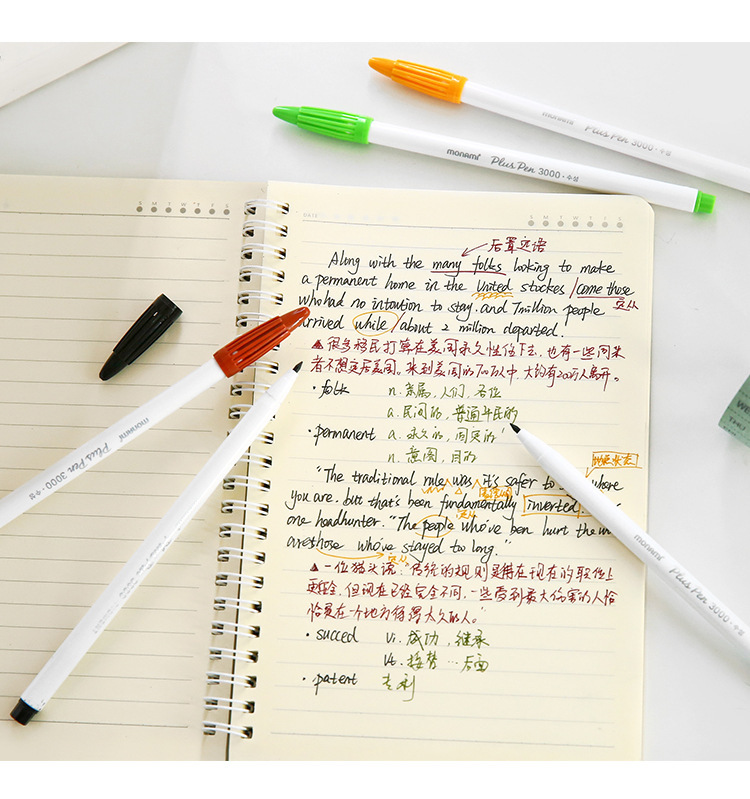 monami Plus Pen 3000 · 수성
monami Plus Pen 3000 · 수성
S M T W T F S
DATE
S M T W T F S
后置定语
Along with the many folks looking to make
a permanent home in the United stockes / come those
who had no intention to stay. and 7million people 定从
arrived while / about 2 million departed.
▲很多移民打算在美国永久性住下去, 也有一些同来
者不想定居美国。来到美国的700万人中, 大约有200万人离开。
· folk n. 亲属, 人们, 各位
a. 民间的, 普通平民的
· permanent a. 永久的, 固定的
n. 意图, 目的
地点状态
"The traditional rule was it's safer to where
you are. but that's been fundamentally inverted.
one headhunter. "The people who've ben hurt the
are those who've stayed too long."
定从
▲一位猎头说: "传统的规则是待在现在的职位上
更安全, 但现在已经完全不同, 一些受到最大伤害的人恰
恰是在一个地方待得太久的人。"
· succed vi. 成功, 继承
vt. 接替 … 后面
· patent 专利
monami Plus Pen 3000 · 수성
monami Plus Pen 3000